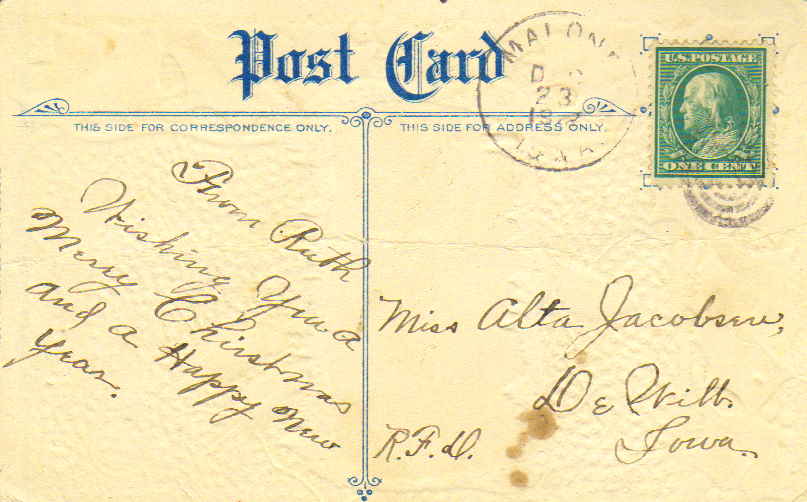 Post Card
THIS SIDE FOR CORRESPONDENCE ONLY.
THIS SIDE FOR ADDRESS ONLY.
MALONE
23
IOWA
U.S. POSTAGE
ONE CENT
From Ruth
Wishing You a
Merry Christmas
and a Happy New
Year.
Miss Alta Jacobsen,
De Witt.
Iowa.
R.F.D.